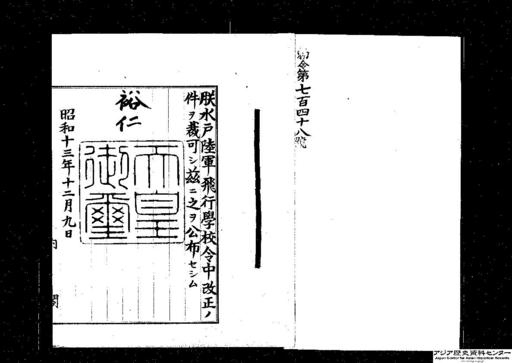 勅令第七百四十八號
朕水戸陸軍飛行學校令中改正ノ
件ヲ裁可シ茲ニ之ヲ公布セシム
裕仁
天皇
御璽
昭和十三年十二月九日
内閣
アジア歴史資料センター
Japan Center for Asian Historical Records